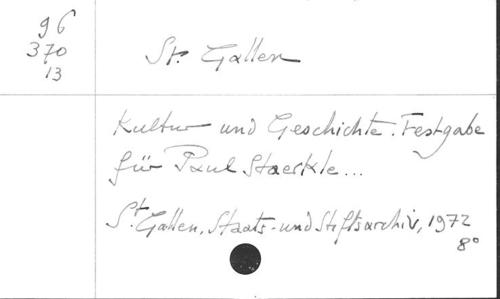 96
370
13
St. Gallen
Kultur und Geschichte. Festgabe
für Paul Staerkle...
St. Gallen, Staats- und Stiftsarchiv, 1972
8°